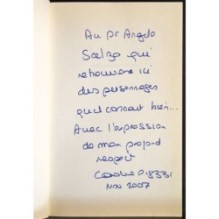 Au Pr Angelo
Scelza qui
retrouvera ici
des personnages
qu'il connait bien...
Avec l'expression
de mon profond
respect
Caroline
Nov 2007